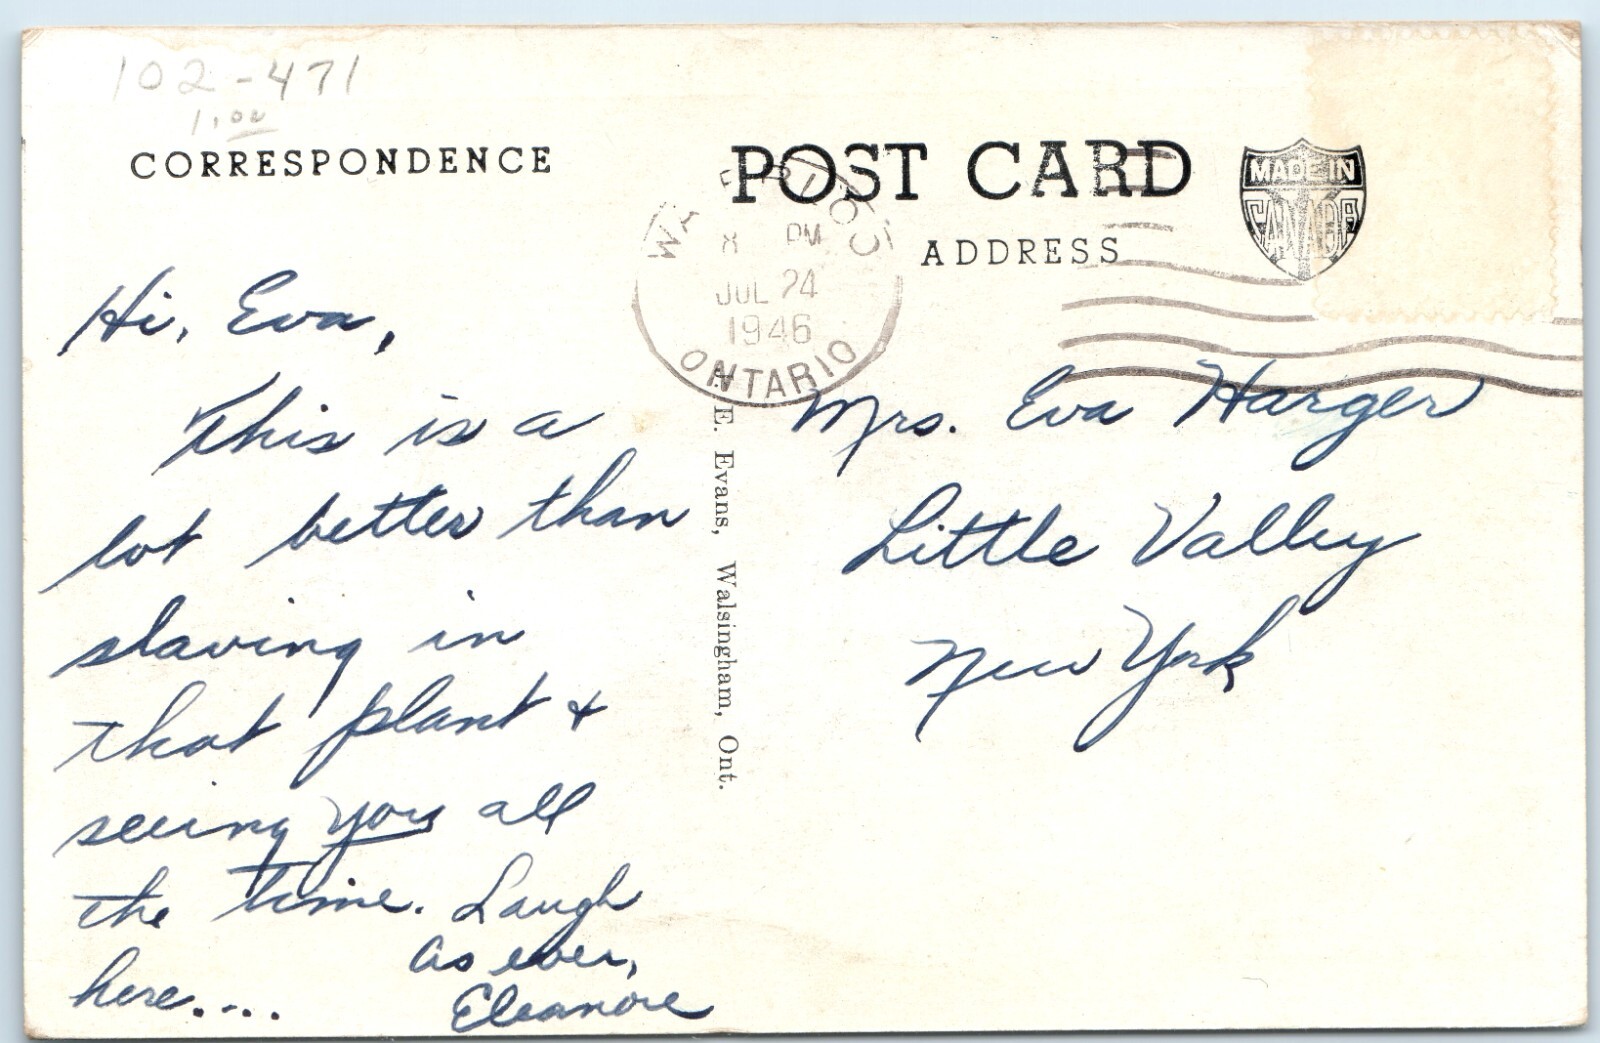 102-471
1.00
CORRESPONDENCE
POST CARD
MADE IN
CANADA
ADDRESS
PM
JUL 24
1946
ONTARIO
Hi, Eva,
This is a
lot better than
slaving in
that plant +
seeing you all
the time. Laugh
here....
As ever,
Eleanore
E. Evans, Walsingham, Ont.
Mrs. Eva Harger
Little Valley
New York